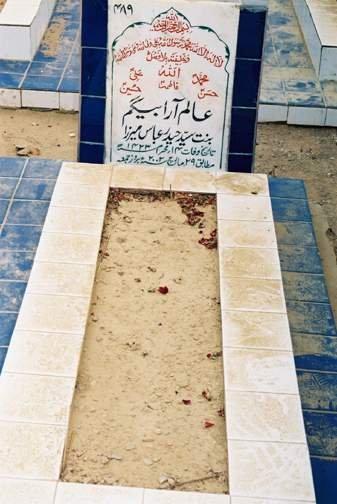 ۴۸۹
بسم اللہ الرحمن الرحیم
لا الہ الا اللہ محمد رسول اللہ علی ولی اللہ وصی رسول اللہ
وخلیفتہ بلا فصل
محمدؐ اللہ علیؑ
حسنؑ فاطمہؑ حسینؑ
عالم آرا بیگم
بنت سید حیدر عباس میرزا
تاریخ وفات ۱۴ محرم ۱۴۲۳ھ
مطابق ۲۹ مارچ ۲۰۰۲ء بروز جمعہ